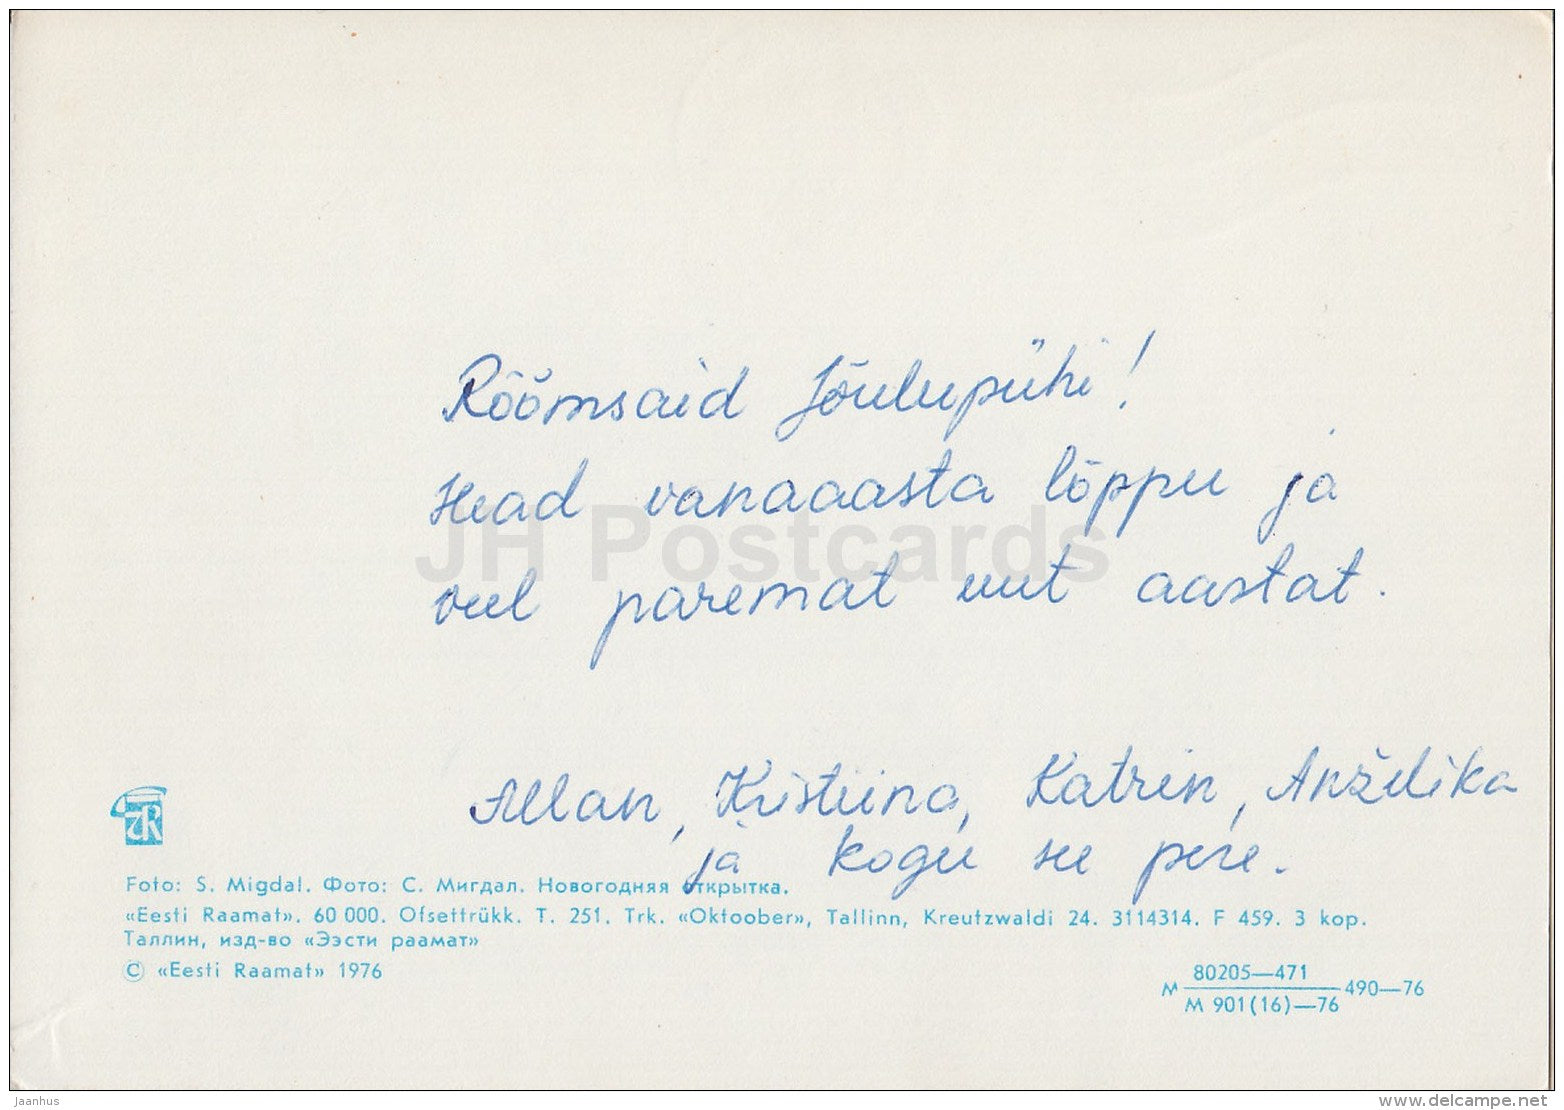 Rõõmsaid Jõulupühi!
Head vanaaasta lõppu ja
veel paremat uut aastat.
Allan, Kristiina, Katrin, Anželika
ja kogu see pere.
JH Postcards
Foto: S. Migdal. Фото: С. Мигдал. Новогодняя открытка.
«Eesti Raamat». 60 000. Ofsettrükk. T. 251. Trk. «Oktoober», Tallinn, Kreutzwaldi 24. 3114314. F 459. 3 kop.
Таллин, изд-во «Ээсти раамат»
© «Eesti Raamat» 1976
80205—471
М 490—76
М 901(16)—76
Jaanhus
delcampe.net